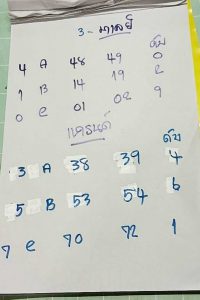 3 - มาลย์
ดับ
4 A 48 49 0
1 B 14 19 2
0 C 01 08 9
เทรนด์
ดับ
3 A 38 39 4
5 B 53 54 6
7 C 70 72 1